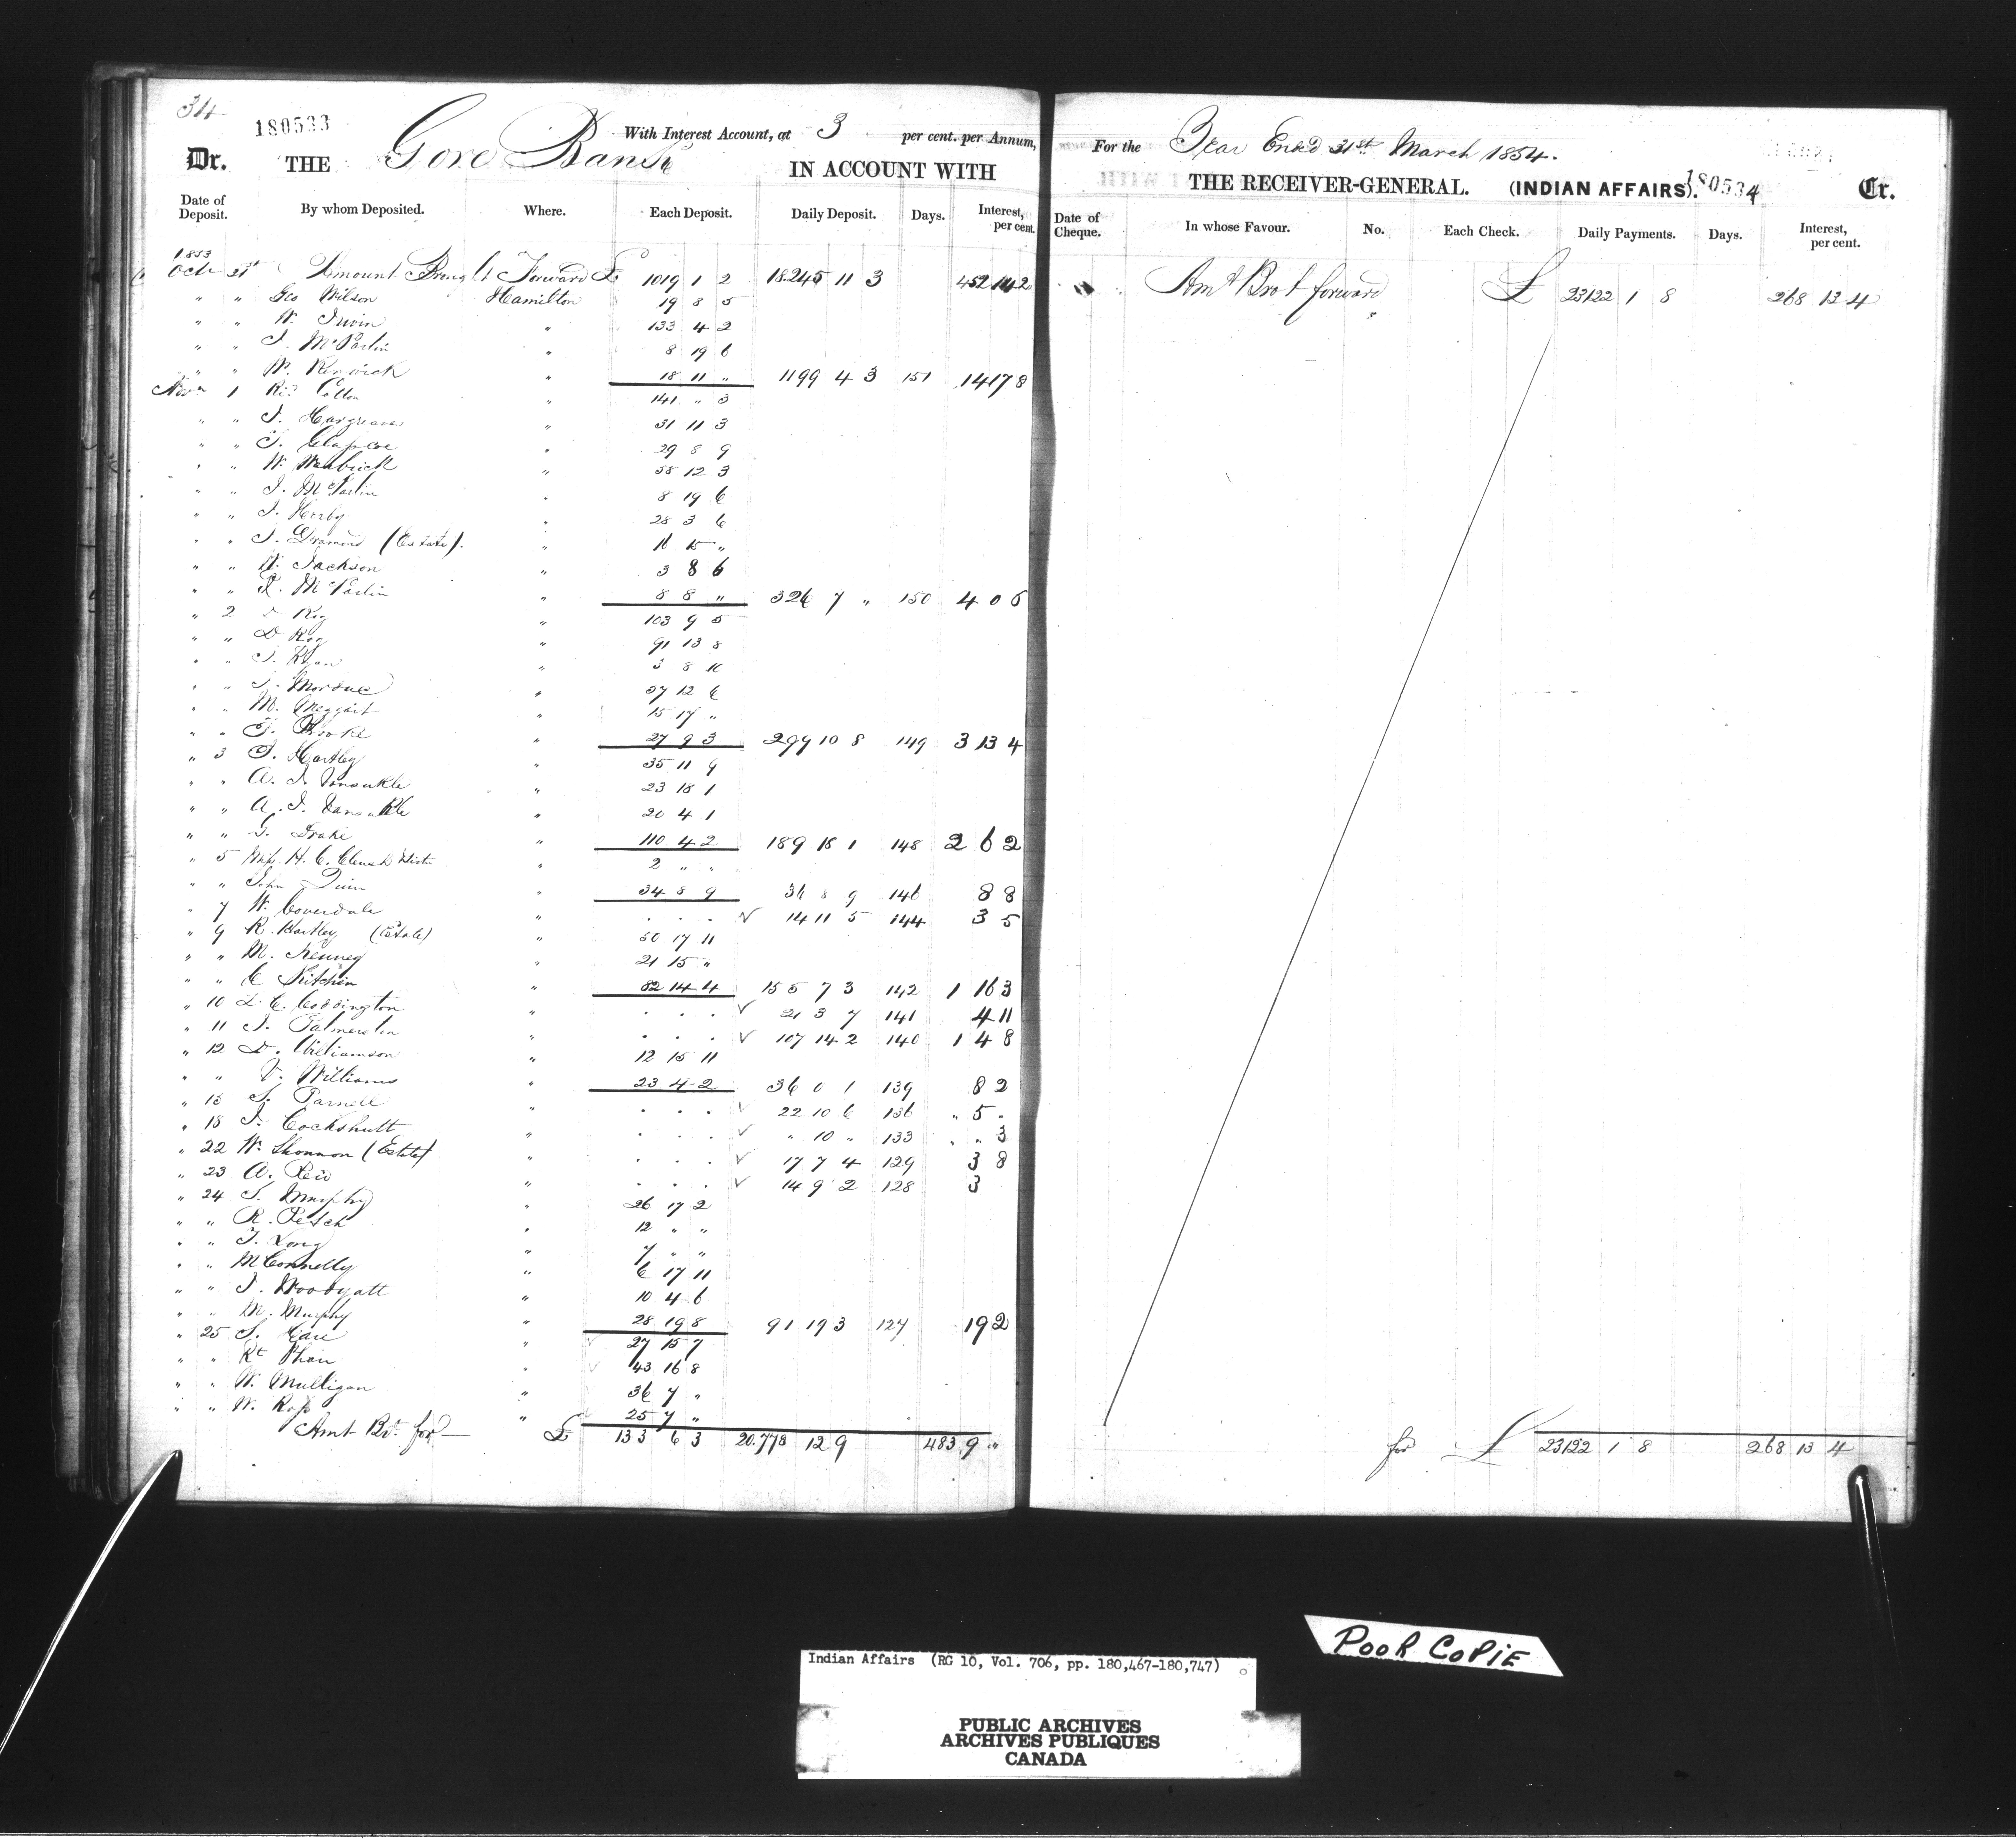 34
180533
Gore Bank
With Interest Account, at 3 per cent. per Annum,
Dr. THE IN ACCOUNT WITH
Date of Deposit. By whom Deposited. Where. Each Deposit. Daily Deposit. Days. Interest, per cent.
1853
Octr 31st Amount Brought Forward £ 1019 1 2 18.245 11 3 452 14 2
" " Geo Wilson Hamilton 19 8 5
" " W. Irwin " 133 4 2
" " " 8 19 6
" " W. Renwick " 18 11 " 1199 4 3 151 14 17 8
Novr 1 " 141 " 3
" " J. Hargreaves " 31 11 3
" " " 29 8 9
" " W. " 58 12 3
" " " 8 19 6
" " " 28 3 6
" " (Estate). " 16 15 "
" " W. Jackson " 3 8 6
" " " 8 8 " 326 7 " 150 4 0 5
" 2 " 103 9 5
" " " 91 13 8
" " J. Ryan " 3 8 10
" " " 57 12 6
" " M. " 15 17 "
" " " 27 9 3 299 10 8 149 3 13 4
" 3 J. Hartley " 35 11 9
" " A. J. " 23 18 1
" " A. J. " 20 4 1
" " Drake " 110 4 2 189 18 1 148 2 6 2
" 5 H. C. " 2 " "
" " John Quinn " 34 8 9 36 8 9 146 8 8
" 7 W. Coverdale " . . . ✓ 14 11 5 144 3 5
" 9 R. Hartley (Estate) " 50 17 11
" " M. Kenney " 21 15 "
" " E Kitchin " 82 14 4 155 7 3 142 1 16 3
" 10 Coddington " . . . ✓ 21 3 7 141 4 11
" 11 J. Palmerston " . . . ✓ 107 14 2 140 1 4 8
" 12 D. Williamson " 12 15 11
" " Williams " 23 4 2 36 0 1 139 8 2
" 15 S. Parnell " . . . ✓ 22 10 6 136 " 5 "
" 18 J. Cockshutt " . . . ✓ " 10 " 133 " " 3
" 22 W. Shannon (Estate) " . . . ✓ 17 7 4 129 3 8
" 23 A. Reid " . . . ✓ 14 9 2 128 3
" 24 S. Murphy " 26 17 2
" " R. " 12 " "
" " T. Long " 7 " "
" " M Connelly " 6 17 11
" " J. Woodyatt " 10 4 6
" " M. Murphy " 28 19 8 91 19 3 127 19 2
" 25 S. " 27 15 7
" " Rt " 43 16 8
" " W. Mulligan " 36 7 "
" " W. Ross " 25 7 "
Amt Bt. for £ 133 6 3 20.778 12 9 483 9 "
For the Year Ended 31st March 1854.
THE RECEIVER-GENERAL. (INDIAN AFFAIRS). 180534 Cr.
Date of Cheque. In whose Favour. No. Each Check. Daily Payments. Days. Interest, per cent.
Amt Brot forward £ 23122 1 8 268 13 4
for £ 23122 1 8 268 13 4
POOR COPIE
Indian Affairs (RG 10, Vol. 706, pp. 180,467-180,747)
PUBLIC ARCHIVES
ARCHIVES PUBLIQUES
CANADA